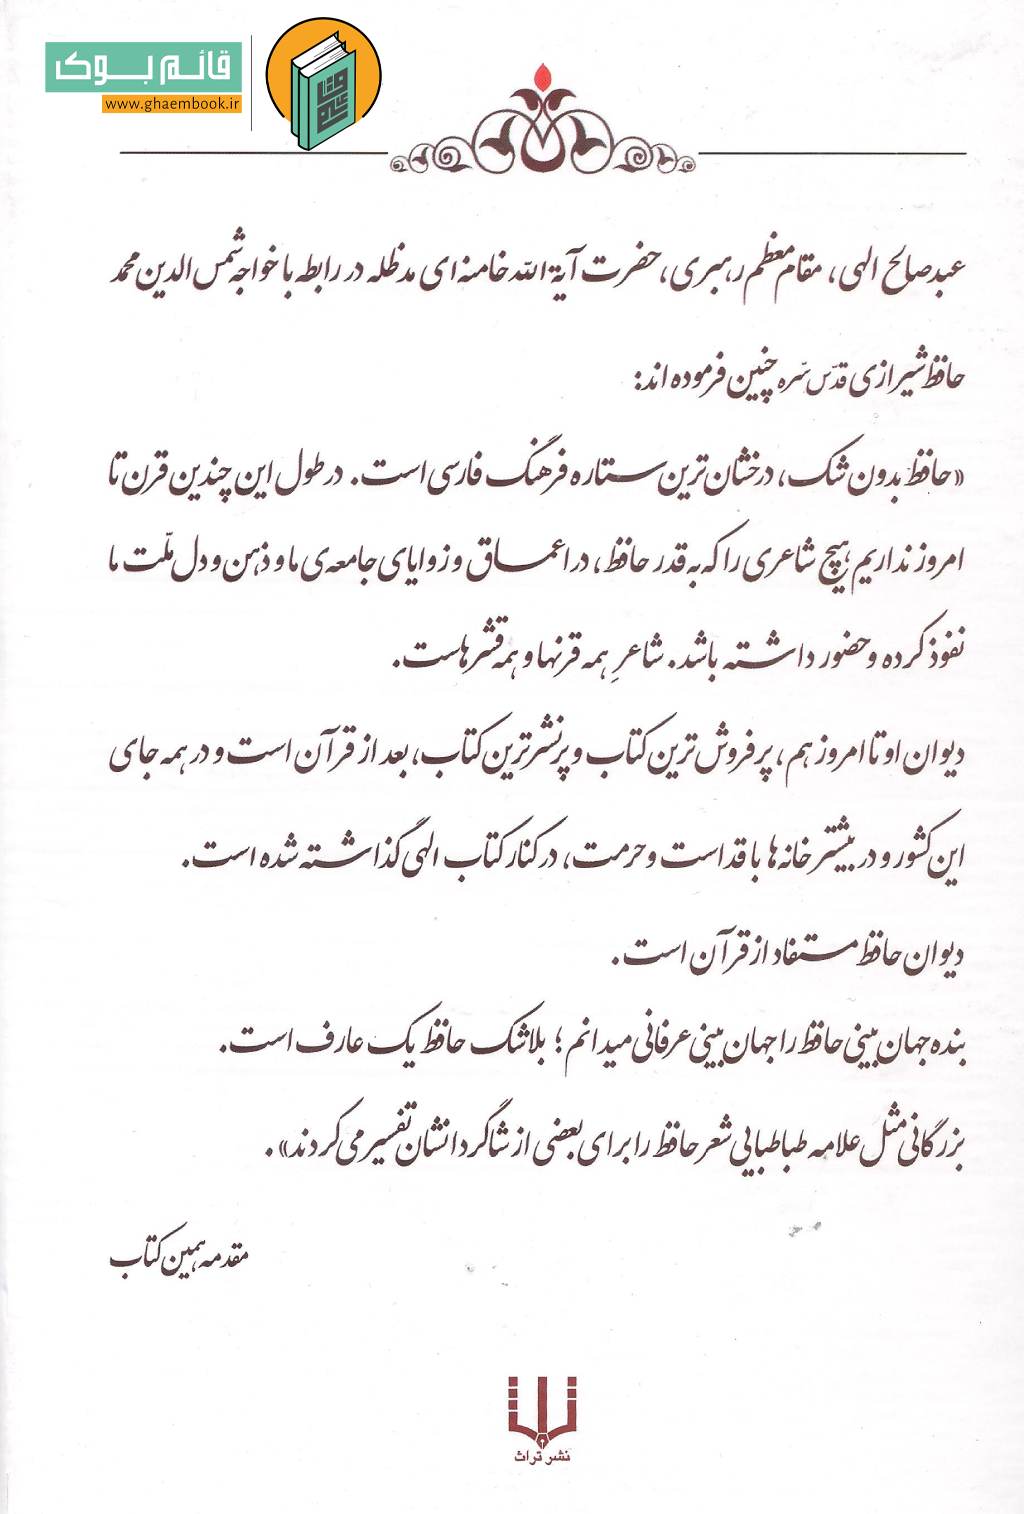 قائم بوک
www.ghaembook.ir
عبد صالح الهی، مقام معظم رهبری، حضرت آیة الله خامنه ای مدظله در رابطه با خواجه شمس الدین محمد
حافظ شیرازی قدّس سّره چنین فرموده اند:
«حافظ بدون شک، درخشان ترین ستاره فرهنگ فارسی است. در طول این چندین قرن تا
امروز نداریم هیچ شاعری را که به قدر حافظ، در اعماق و زوایای جامعه ی ما و ذهن و دل ملّت ما
نفوذ کرده و حضور داشته باشد. شاعرِ همه قرنها و همه قشرهاست.
دیوان او تا امروز هم، پرفروش ترین کتاب و پرنشرترین کتاب، بعد از قرآن است و در همه جای
این کشور و در بیشتر خانه ها با قداست و حرمت، در کنار کتاب الهی گذاشته شده است.
دیوان حافظ مستفاد از قرآن است.
بنده جهان بینی حافظ را جهان بینی عرفانی میدانم؛ بلاشک حافظ یک عارف است.
بزرگانی مثل علامه طباطبایی شعر حافظ را برای بعضی از شاگردانشان تفسیر می کردند».
مقدمه همین کتاب
نشر تراث